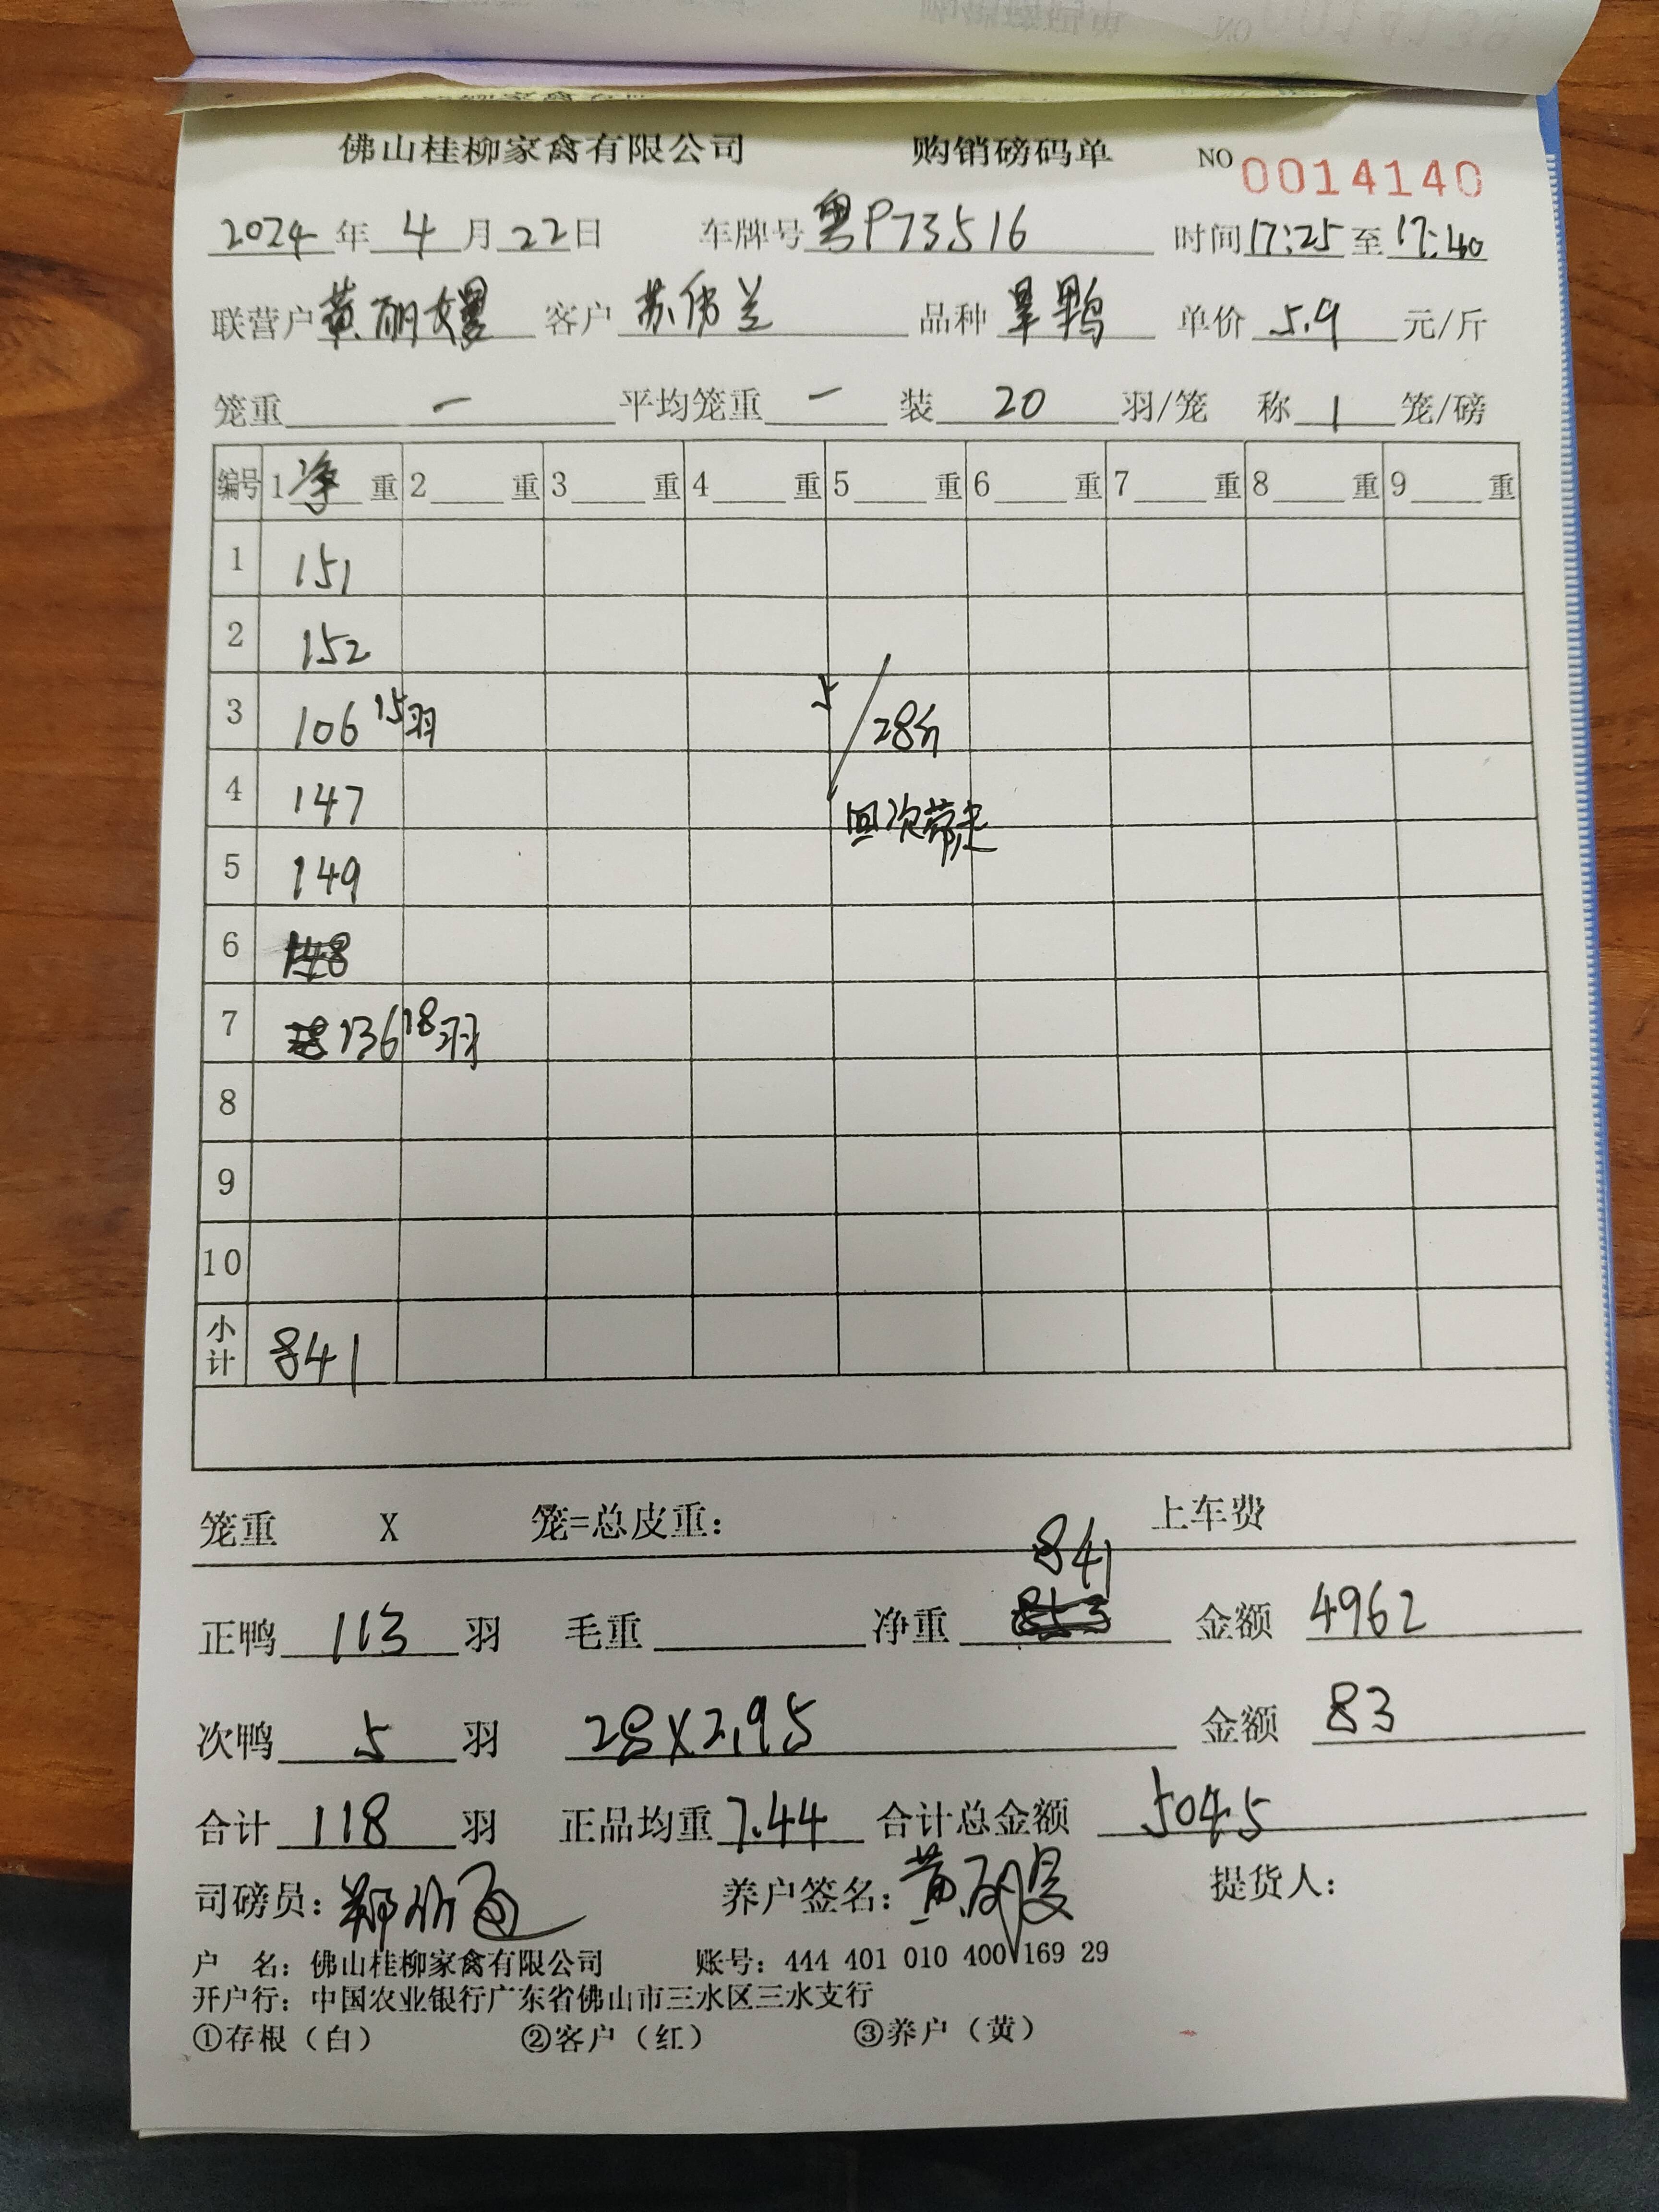 佛山桂柳家禽有限公司 购销磅码单 NO 0014140
2024 年 4 月 22 日 车牌号 粤P73516 时间 17:25 至 17:40
联营户 黄丽嫚 客户 苏伟兰 品种 旱鸭 单价 5.9 元/斤
笼重 一 平均笼重 一 装 20 羽/笼 称 1 笼/磅
编号 1 净 重 2 重 3 重 4 重 5 重 6 重 7 重 8 重 9 重
1 151
2 152
3 106 15羽 5/28斤
4 147 次带走
5 149
6 148
7 136 18羽
8
9
10
小计 841
笼重 X 笼=总皮重: 上车费
841
正鸭 113 羽 毛重 净重 853 金额 4962
次鸭 5 羽 28X2.95 金额 83
合计 118 羽 正品均重 7.44 合计总金额 5045
司磅员: 养户签名: 黄丽嫚 提货人:
户 名: 佛山桂柳家禽有限公司 账号: 444 401 010 400 169 29
开户行: 中国农业银行广东省佛山市三水区三水支行
①存根（白） ②客户（红） ③养户（黄）